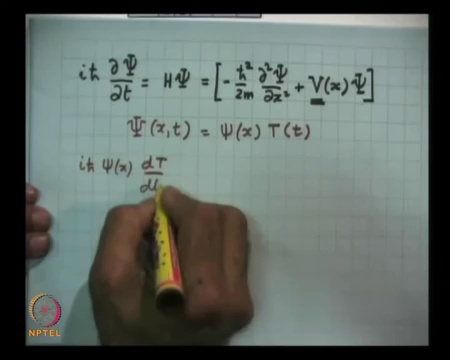 iħ ∂Ψ/∂t = HΨ = [-ħ²/2m ∂²Ψ/∂x² + V(x)Ψ]
Ψ(x,t) = ψ(x) T(t)
iħ ψ(x) dT/dt
NPTEL